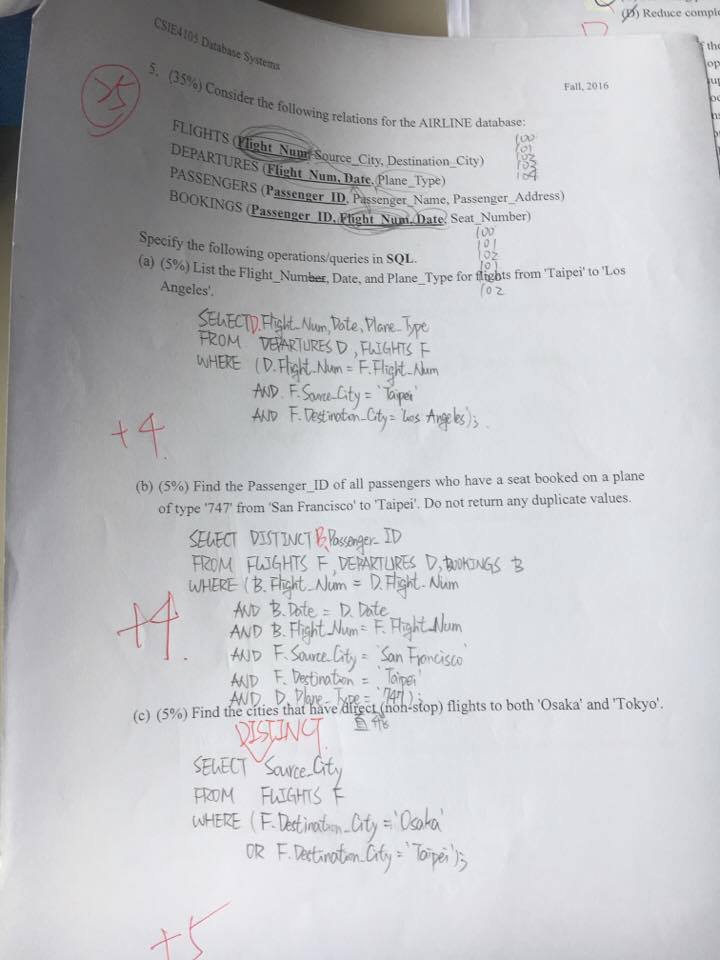 (D) Reduce compl
CSIE4105 Database Systems
Fall, 2016
25
5. (35%) Consider the following relations for the AIRLINE database:
FLIGHTS (Flight_Num, Source_City, Destination_City)
DEPARTURES (Flight_Num, Date, Plane_Type)
PASSENGERS (Passenger_ID, Passenger_Name, Passenger_Address)
BOOKINGS (Passenger_ID, Flight_Num, Date, Seat_Number)
100
101
103
104
100
101
102
101
102
Specify the following operations/queries in SQL.
(a) (5%) List the Flight_Number, Date, and Plane_Type for flights from 'Taipei' to 'Los
Angeles'.
SELECT D.Flight_Num, Date, Plane_Type
FROM DEPARTURES D, FLIGHTS F
WHERE (D.Flight_Num = F.Flight_Num
AND F.Source_City = 'Taipei'
AND F.Destination_City = 'Los Angeles');
+4
(b) (5%) Find the Passenger_ID of all passengers who have a seat booked on a plane
of type '747' from 'San Francisco' to 'Taipei'. Do not return any duplicate values.
SELECT DISTINCT B.Passenger_ID
FROM FLIGHTS F, DEPARTURES D, BOOKINGS B
WHERE (B.Flight_Num = D.Flight_Num
AND B.Date = D.Date
AND B.Flight_Num = F.Flight_Num
AND F.Source_City = 'San Francisco'
AND F.Destination = 'Taipei'
AND D.Plane_Type = '747');
+4.
(c) (5%) Find the cities that have direct (non-stop) flights to both 'Osaka' and 'Tokyo'.
DISTINCT
SELECT Source_City
FROM FLIGHTS F
WHERE (F.Destination_City = 'Osaka'
OR F.Destination_City = 'Taipei');
+5